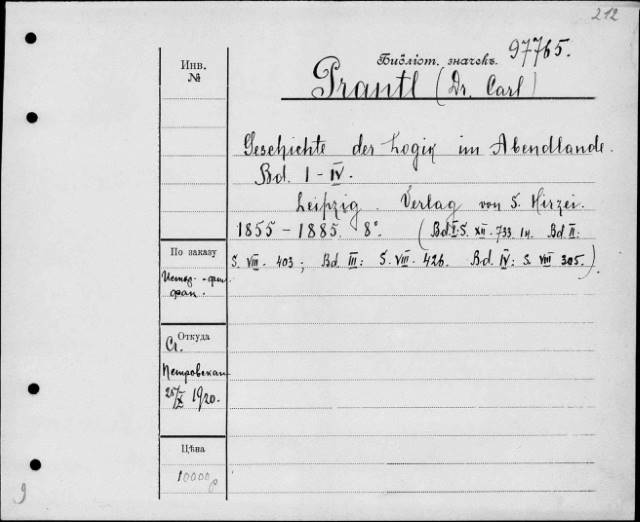 212
Инв.
№
Библіот. значекъ. 97765.
Prantl (Dr. Carl)
Geschichte der Logik im Abendlande.
Bd. I - IV.
Leipzig. Verlag von S. Hirzel.
1855 - 1885. 8°. (Bd. I: S. XII. 733. Bd. II:
S. VIII. 403; Bd. III: S. VIII. 426. Bd. IV: S. VIII 305.)
По заказу
фак.
Откуда
Ст.
25/X 1920.
Цѣна
10000 р
9